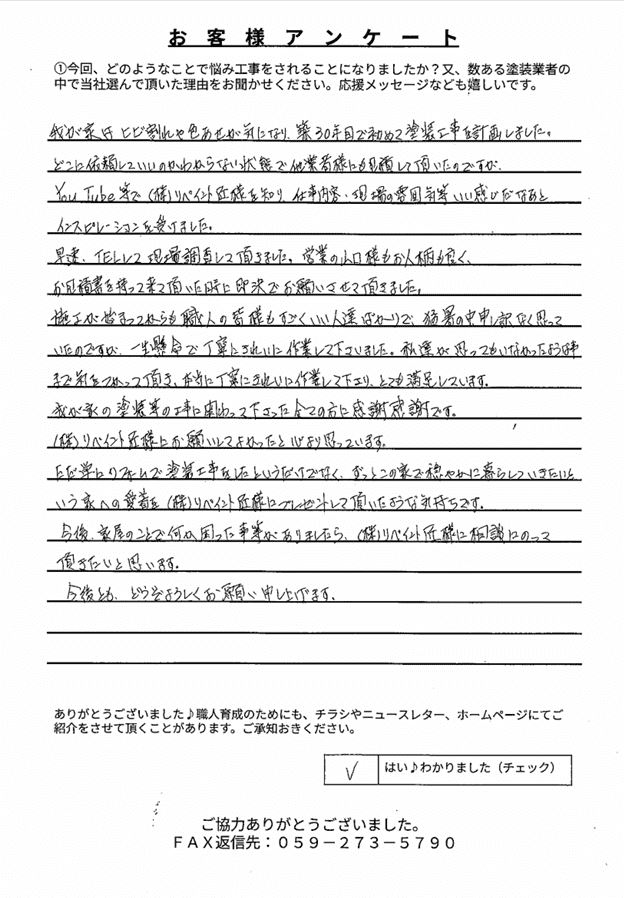 お客様アンケート
①今回、どのようなことで悩み工事をされることになりましたか？又、数ある塗装業者の
中で当社選んで頂いた理由をお聞かせください。応援メッセージなども嬉しいです。
我が家は ヒビ割れや色あせが気になり、築30年目で初めて塗装工事を計画しました。
どこに依頼していいのかわからない状態で他業者様にも見積して頂いたのですが、
You Tube等で (株)リペイント匠様を知り、仕事内容・現場の雰囲気等いい感じだなあと
インスピレーションを受けました。
早速、TELして現場調査して頂きました。営業の山口様もお人柄も良く、
お見積書を持って来て頂いた時に即決でお願いさせて頂きました。
施工が始まってからも職人の皆様もすごくいい人達ばかりで、猛暑の中申し訳なく思って
いたのですが、一生懸命で丁寧にきれいに作業して下さいました。私達が思ってもいなかったような事
まで気をつかって頂き、本当に丁寧にきれいに作業して下さり、とても満足しています。
我が家の塗装等の工事に関わって下さった全ての方に感謝感謝です。
(株)リペイント匠様にお願いしてよかったと心より思っています。
ただ単にリフォームで塗装工事をしたというだけでなく、ずっとこの家で穏やかに暮らしていきたいと
いう家への愛着を(株)リペイント匠様にプレゼントして頂いたような気持ちです。
今後、家屋のことで何か困った事等がありましたら、(株)リペイント匠様に相談にのって
頂きたいと思います。
今後とも、どうぞよろしくお願い申し上げます。
ありがとうございました♪職人育成のためにも、チラシやニュースレター、ホームページにてご
紹介をさせて頂くことがあります。ご承知おきください。
✓ はい♪わかりました（チェック）
ご協力ありがとうございました。
ＦＡＸ返信先：０５９－２７３－５７９０